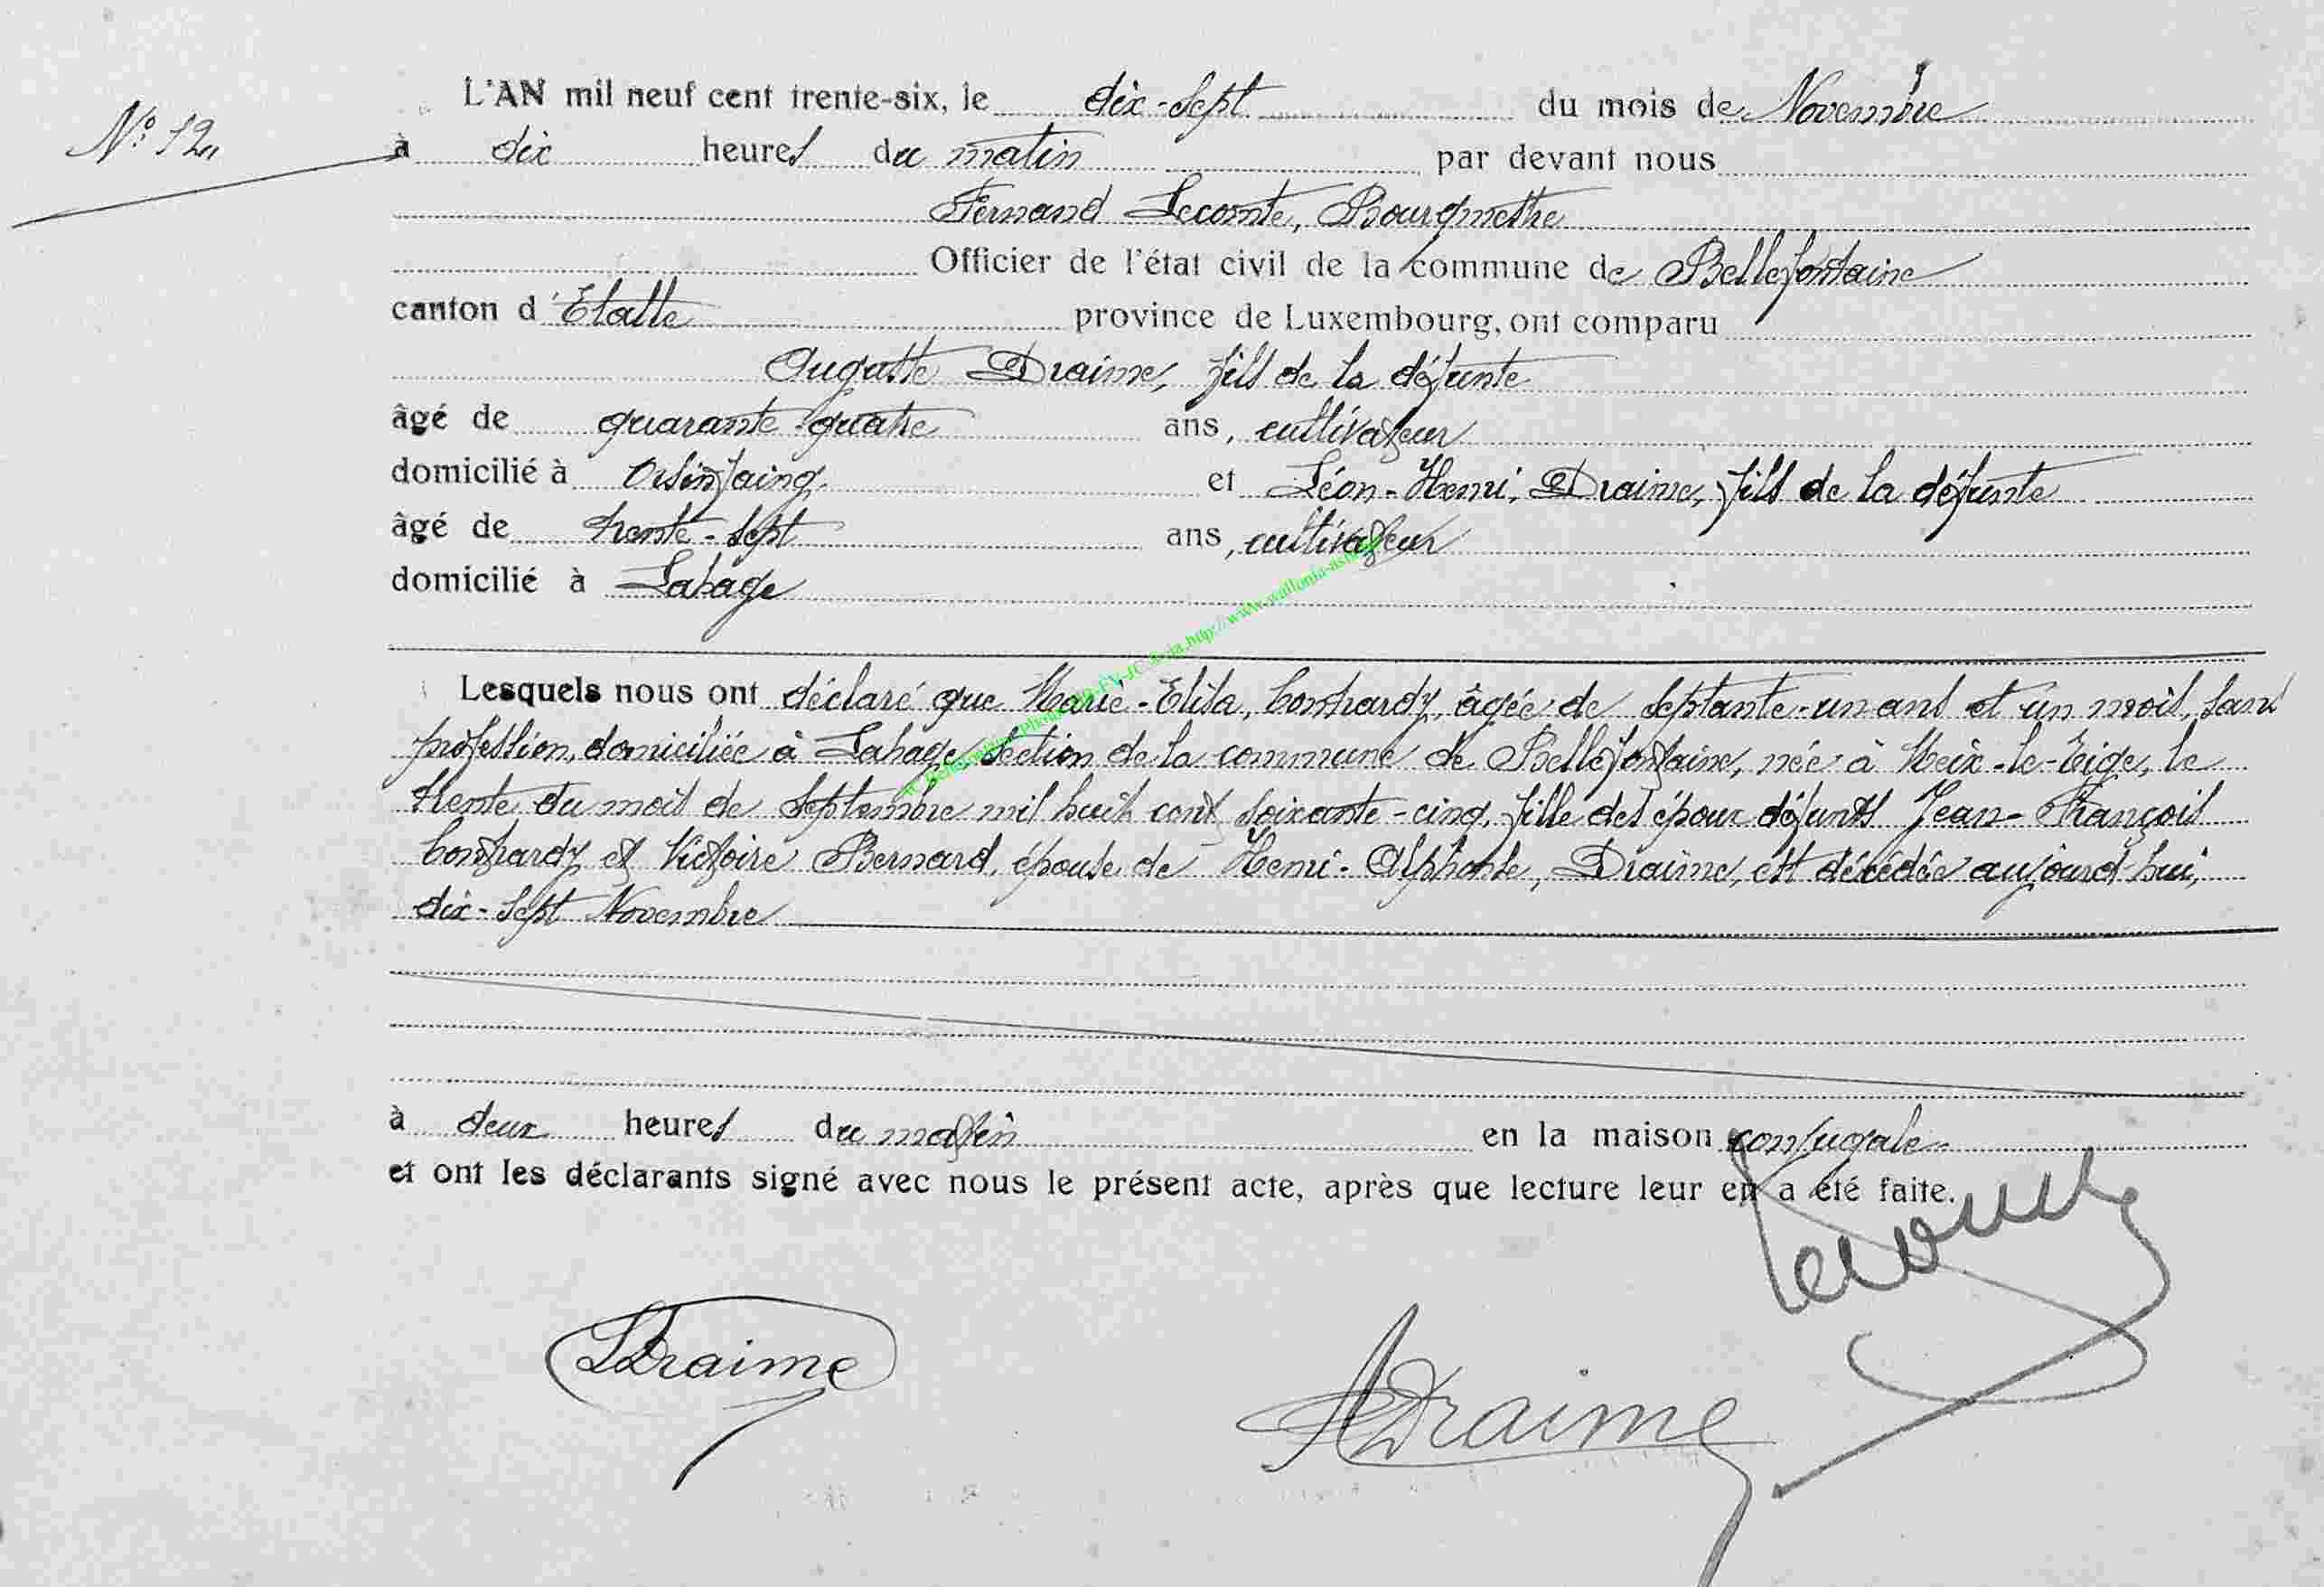 N° 12
L'AN mil neuf cent trente-six, le dix-sept du mois de Novembre
à dix heures du matin par devant nous
Fernand Lecomte, Bourgmestre
Officier de l'état civil de la commune de Bellefontaine
canton d'Etalle province de Luxembourg, ont comparu
Auguste Draime, fils de la défunte
âgé de quarante-quatre ans, cultivateur
domicilié à Orsinfaing et Léon-Henri, Draime, fils de la défunte
âgé de trente-sept ans, cultivateur
domicilié à Lahage
Lesquels nous ont déclaré que Marie-Elisa, Conrardy, âgée de septante-un ans et un mois, sans
profession, domiciliée à Lahage, section de la commune de Bellefontaine, née à Meix-le-Tige, le
trente du mois de septembre mil huit cent soixante-cinq, fille des époux défunts Jean-François
Conrardy et Victoire Bernard, épouse de Henri-Alphonse, Draime, est décédée aujourd'hui,
dix-sept Novembre
à deux heures du matin en la maison conjugale
et ont les déclarants signé avec nous le présent acte, après que lecture leur en a été faite.
Lecomte
LDraime
ADraime